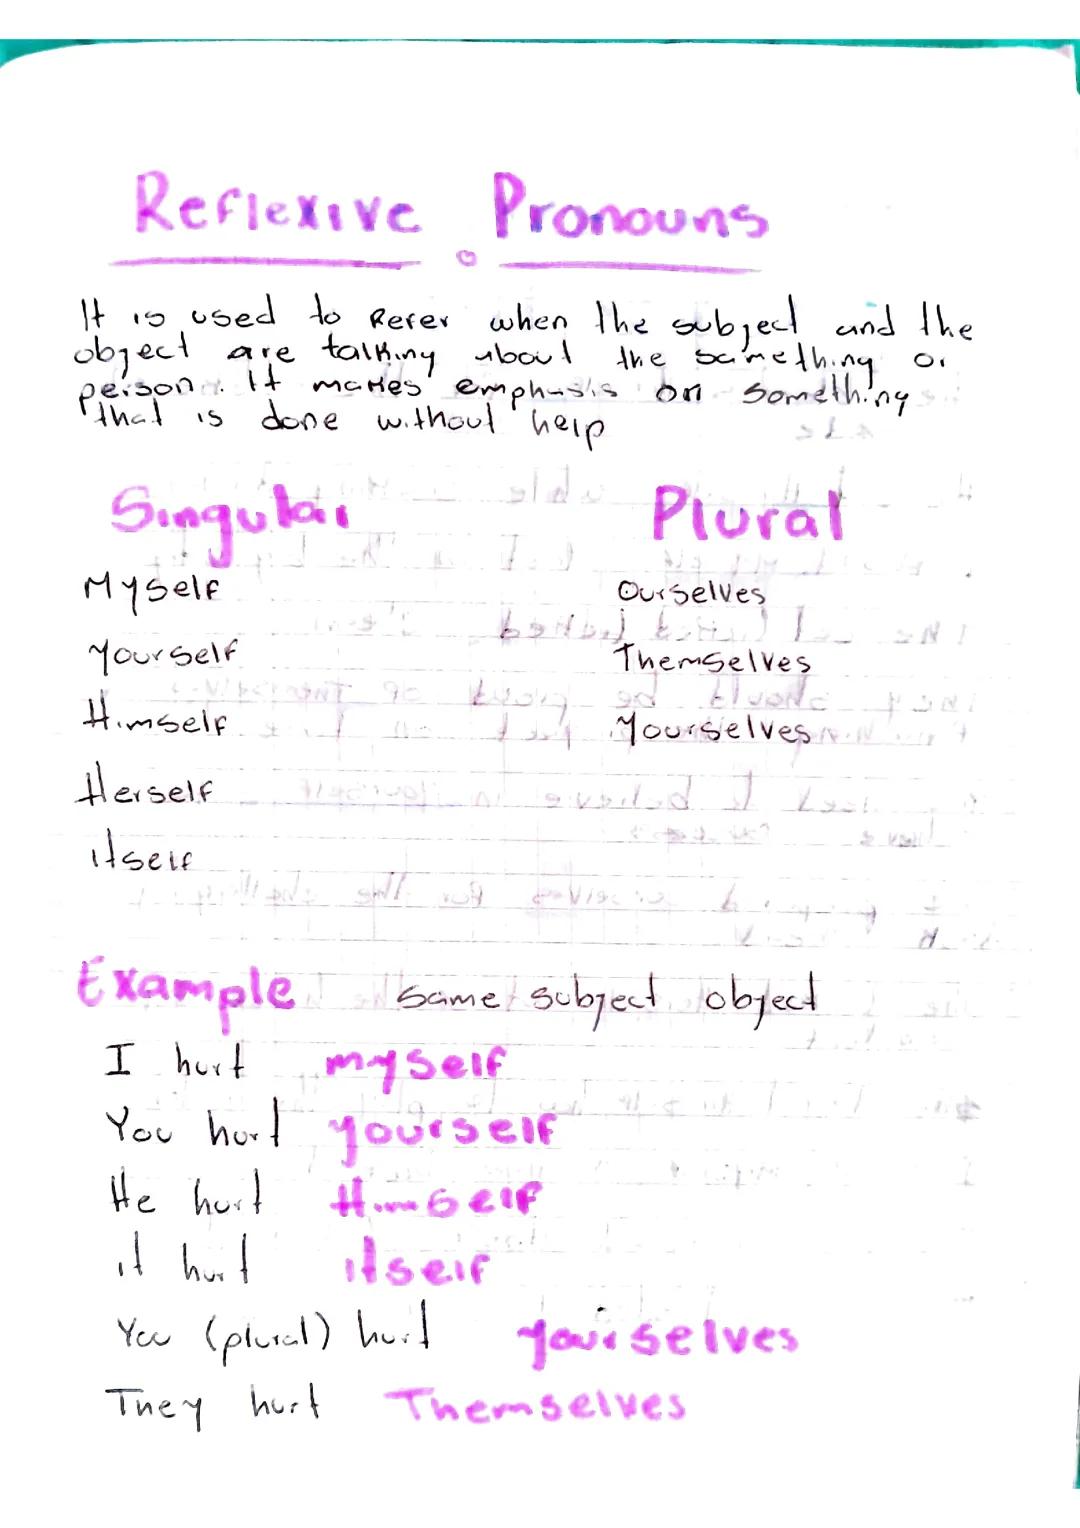 Reflexive Pronouns
It is used to Refer when the subject and the
object are talking about the same thing or
person. It makes emphasis on something
that is done without help
Singular Plural
Myself Ourselves
Yourself Themselves
Himself Yourselves
Herself
itself
Example same subject object
I hurt myself
You hurt yourself
He hurt Himself
it hurt itself
You (plural) hurt yourselves
They hurt Themselves